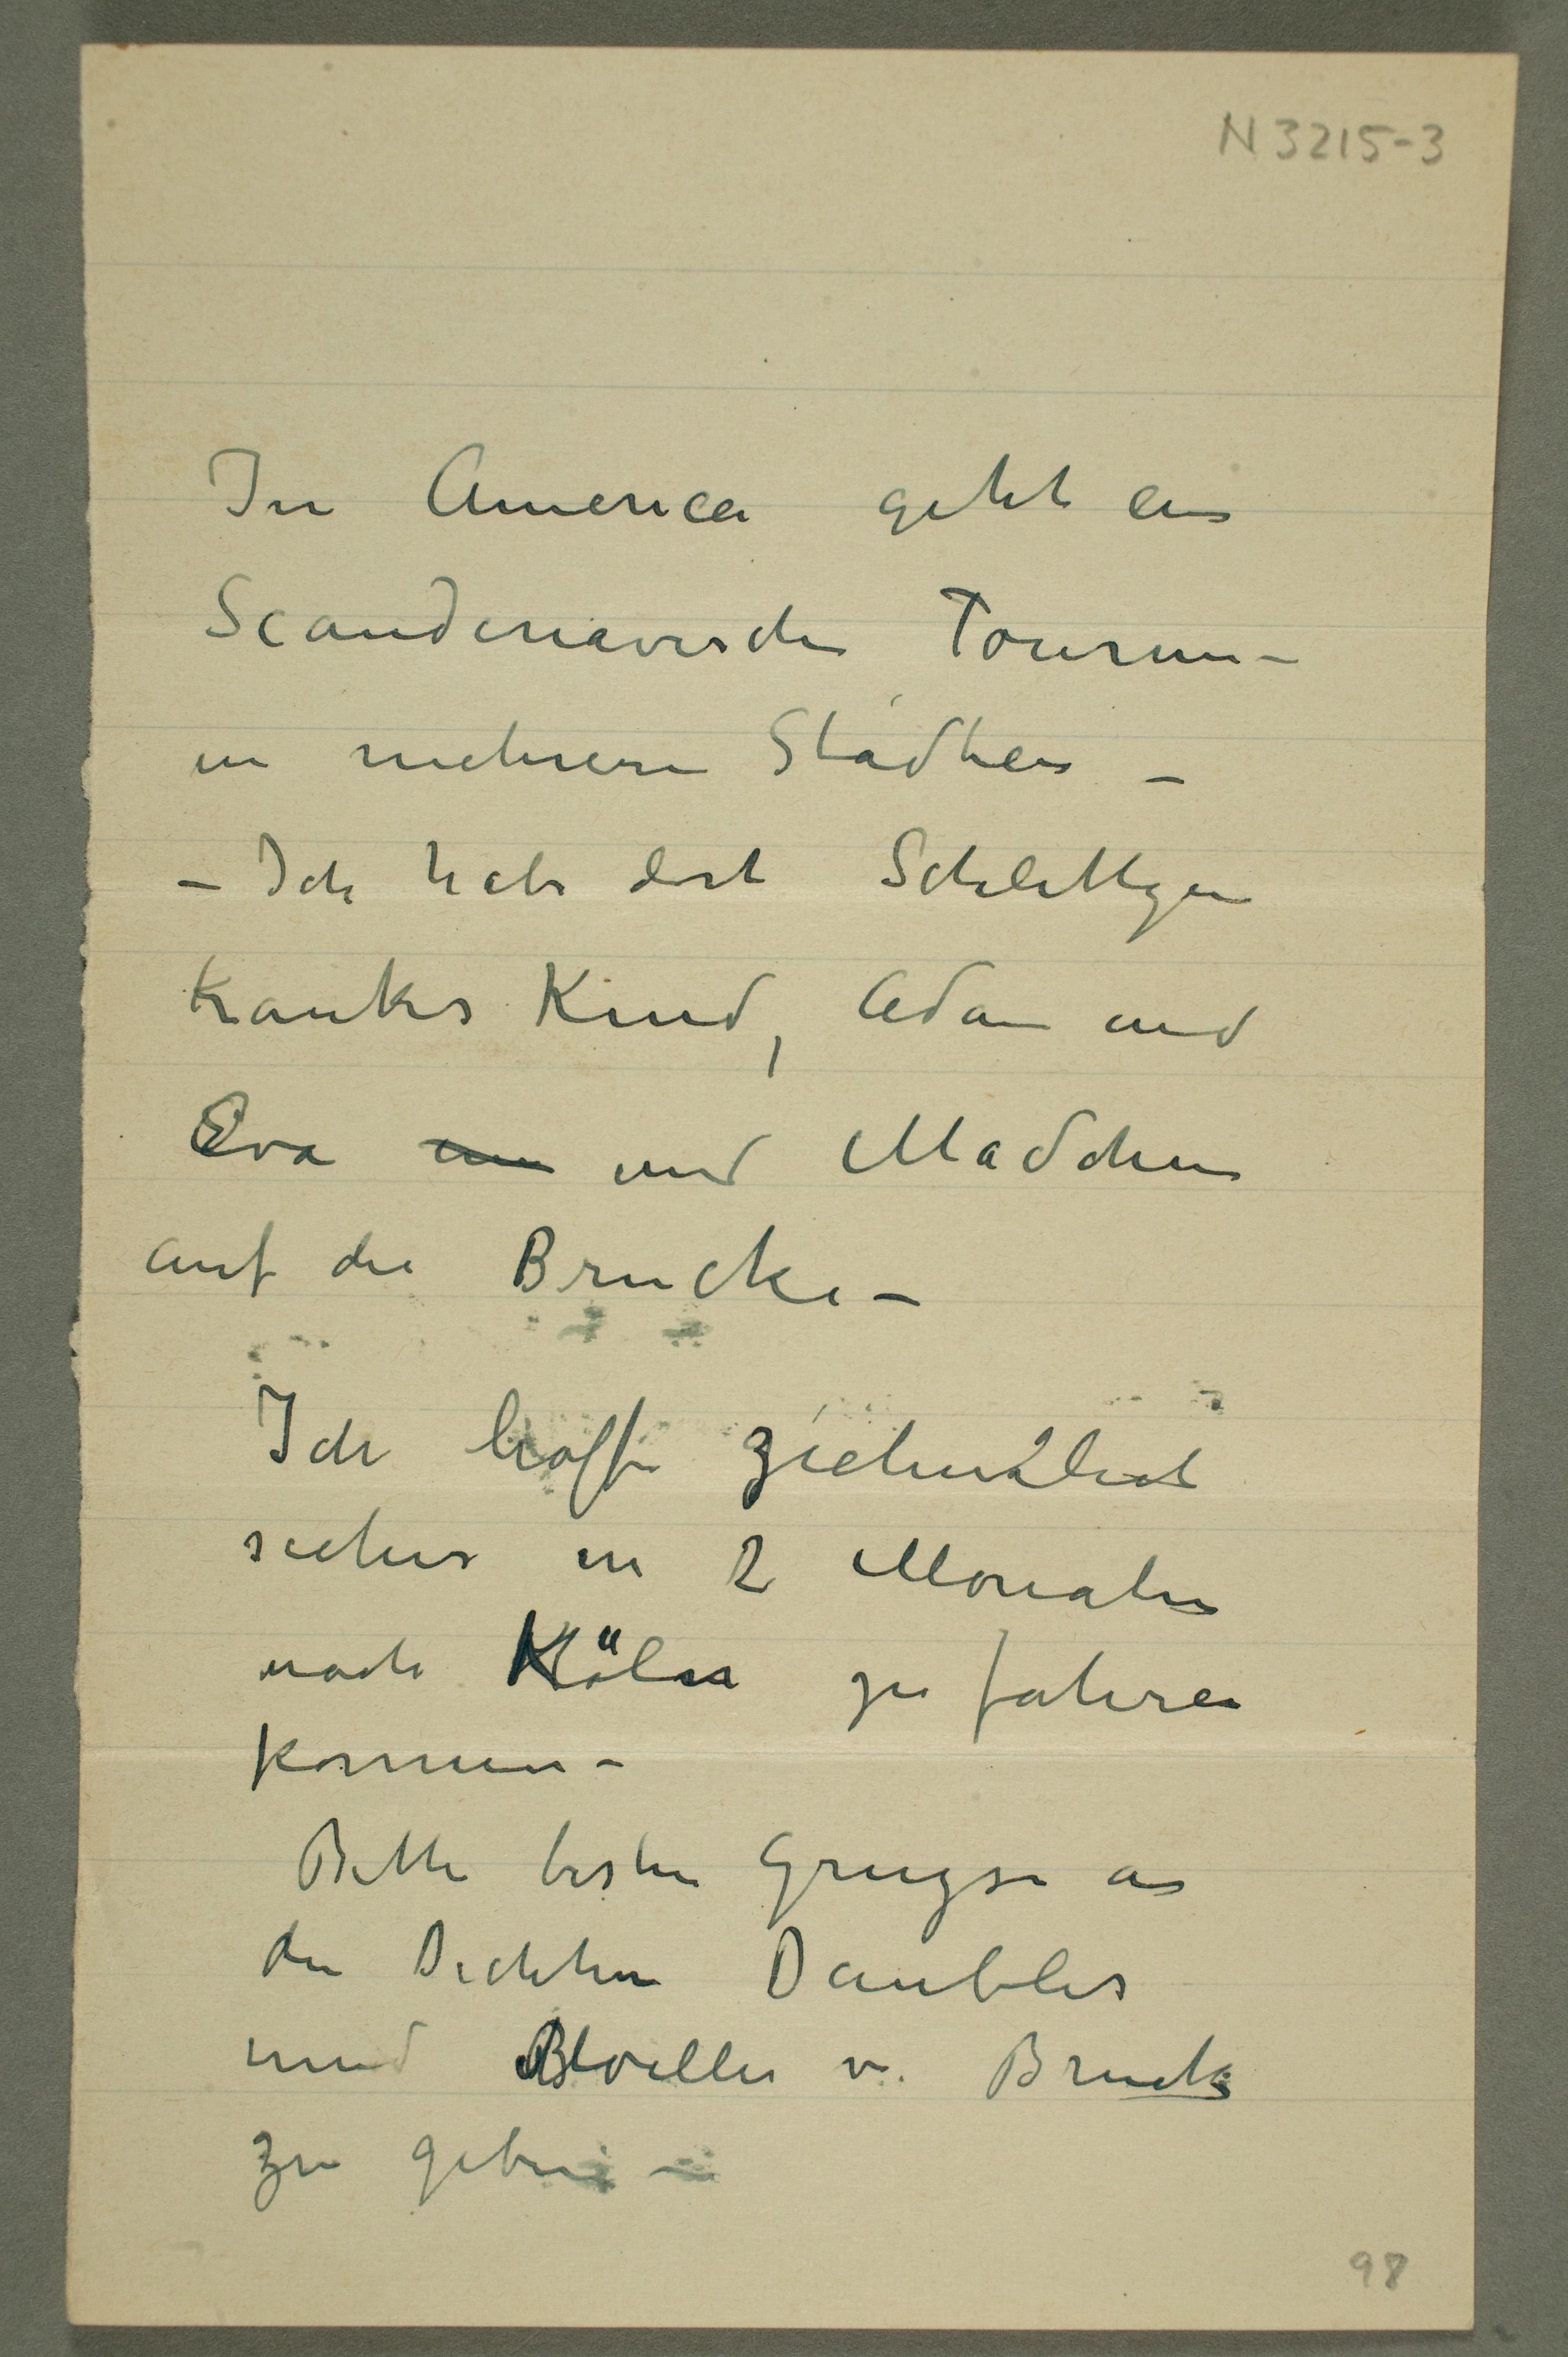 N 3215-3
In America geht ein
Scandinavische Tournee–
in mehreren Städten –
– Ich habe dort Schlittgen
krankes Kind, Adam und
Eva und Mädchen
auf die Brücke –
Ich hoffe
sicher in 2 Monaten
nach Köln zu fahren
können –
Bitte besten Grüsse an
den Dichter Däubler
und v. Bruck
zu geben –
98